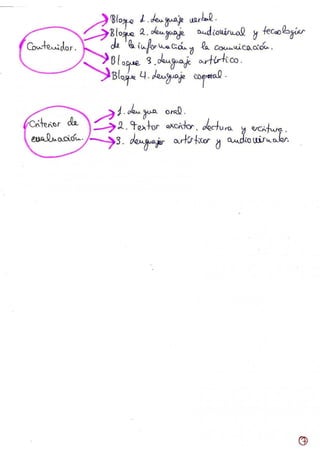 Contenidos.
Bloque 1. Lenguaje verbal.
Bloque 2. Lenguaje audiovisual y tecnologías
de la información y la comunicación.
Bloque 3. Lenguaje artístico.
Bloque 4. Lenguaje corporal.
Criterios de
evaluación.
1. Lengua oral.
2. Textos escritos. Lectura y escritura.
3. Lenguajes artísticos y audiovisuales.